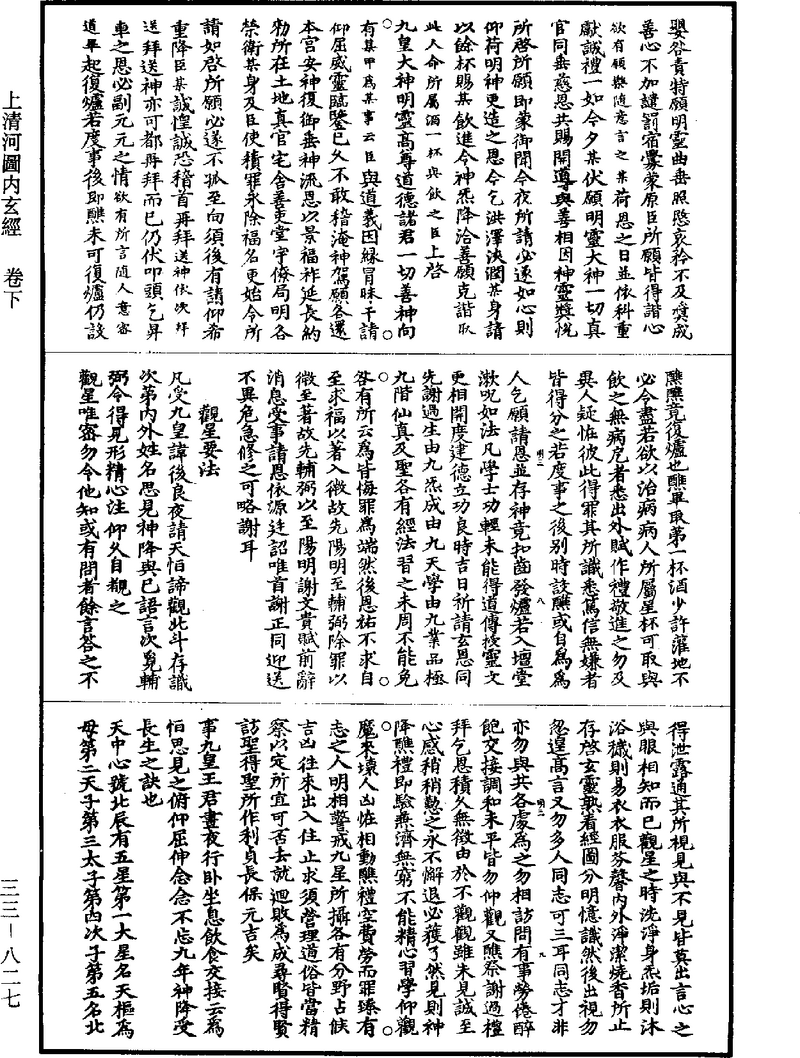 上清河圖內玄經　卷下
三三—八二七
嬰咎責特願明靈曲垂照愍哀矜不及奬成
善心不加譴罰宿釁蒙原臣所願皆得諧心
欲有願樂隨意言之某荷恩之日並依科重
獻誠禮一如今夕某伏願明靈大神一切真
官同垂慈恩共賜開導與善相因神靈獎悅
所啓所願即蒙御聞今夜所請必遂如心則
仰荷明神更造之恩今乞洪澤泱潤某身請
以餘杯賜某飲進令神炁降洽善願克諧取
此人命所屬酒一杯與飲之臣上啓
九皇大神明靈高尊道德諸君一切善神向
有某甲爲某事云臣與道義因緣冒昧干請
仰屈威靈臨鑒已久不敢稽淹神駕願各還
本宮安神復御垂神流恩以景福祚延長約
勑所在土地真官宅舍善吏堂宇僚局明各
榮衛某身及臣使積罪永除福名更始今所
請如啓所願必遂不孤至向須後有請仰希
重降臣某誠惶誠恐稽首再拜送神依次拜
送拜送神亦可都再拜而已仍伏叩頭乞昇
車之恩必副元元之情欲有所言隨人意密
道畢起復爐若度事後即醮未可復爐仍設
醮醮竟復爐也醮畢取第一杯酒少許灌地不
必令盡若欲以治病病人所屬星杯可取與
飲之無病厄者悉出外賦作禮敬進之勿及
異人疑怪彼此得罪其所識悉篤信無嫌者
皆得分之若度事之後別時設醮或自爲爲
人乞願請恩並存神竟扣齒發爐若入壇堂
漱呪如法凡學士功輕未能得道傳授靈文
更相開度建德立功良時吉日祈請玄恩同
先謝過生由九炁成由九天學由九業品極
九階仙真及聖各有經法習之未周不能免
咎有所云爲皆悔罪爲端然後恩祐不求自
至求福以著入微故先陽明至輔弼除罪以
微至著故先輔弼以至陽明謝文貴賦前辭
消息受事請恩依源迋詔唯首謝正同迎送
不異危急修之可略謝耳
觀星要法
凡受九皇諱後良夜請天恒諦觀北斗存識
次第內外姓名思見神降與已語言次覓輔
弼令得見形精心注仰久自覩之
觀星唯密勿令他知或有問者餘言答之不
得泄露通其所視見與不見皆莫出言心之
與眼相知而已觀星之時洗淨身炁垢則沐
浴穢則易衣衣服芬馨內外淨潔燒香所止
存啓玄靈熟看經圖分明憶識然後出視勿
忽遑高言又勿多人同志可三耳同志才非
亦勿與共各處爲之勿相訪問有事勞倦醉
飽交接調和未平皆勿仰觀又醮祭謝過禮
拜乞恩積久無徵由於不觀觀雖未見誠至
心感稍稍懃之永不懈退必獲了然見則神
降醮禮即驗無濟無窮不能精心習學仰觀
魔來壞人凶怪相動醮禮空費勞而罪臻有
志之人明相警戒九星所攝各有分野占候
吉凶往來出入住止求須營理道俗皆當精
察以定所宜可否去就迴敗爲成尋賢得賢
訪聖得聖所作利貞長保元吉矣
事九皇王君晝夜行卧坐息飲食交接云爲
恒思見之俯仰屈伸念念不忘九年神降受
長生之訣也
天中心號北辰有五星第一大星名天樞爲
母第二天子第三太子第四次子第五名北